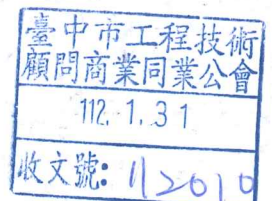 臺中市工程技術
顧問商業同業公會
112. 1. 31
收文號: 112010